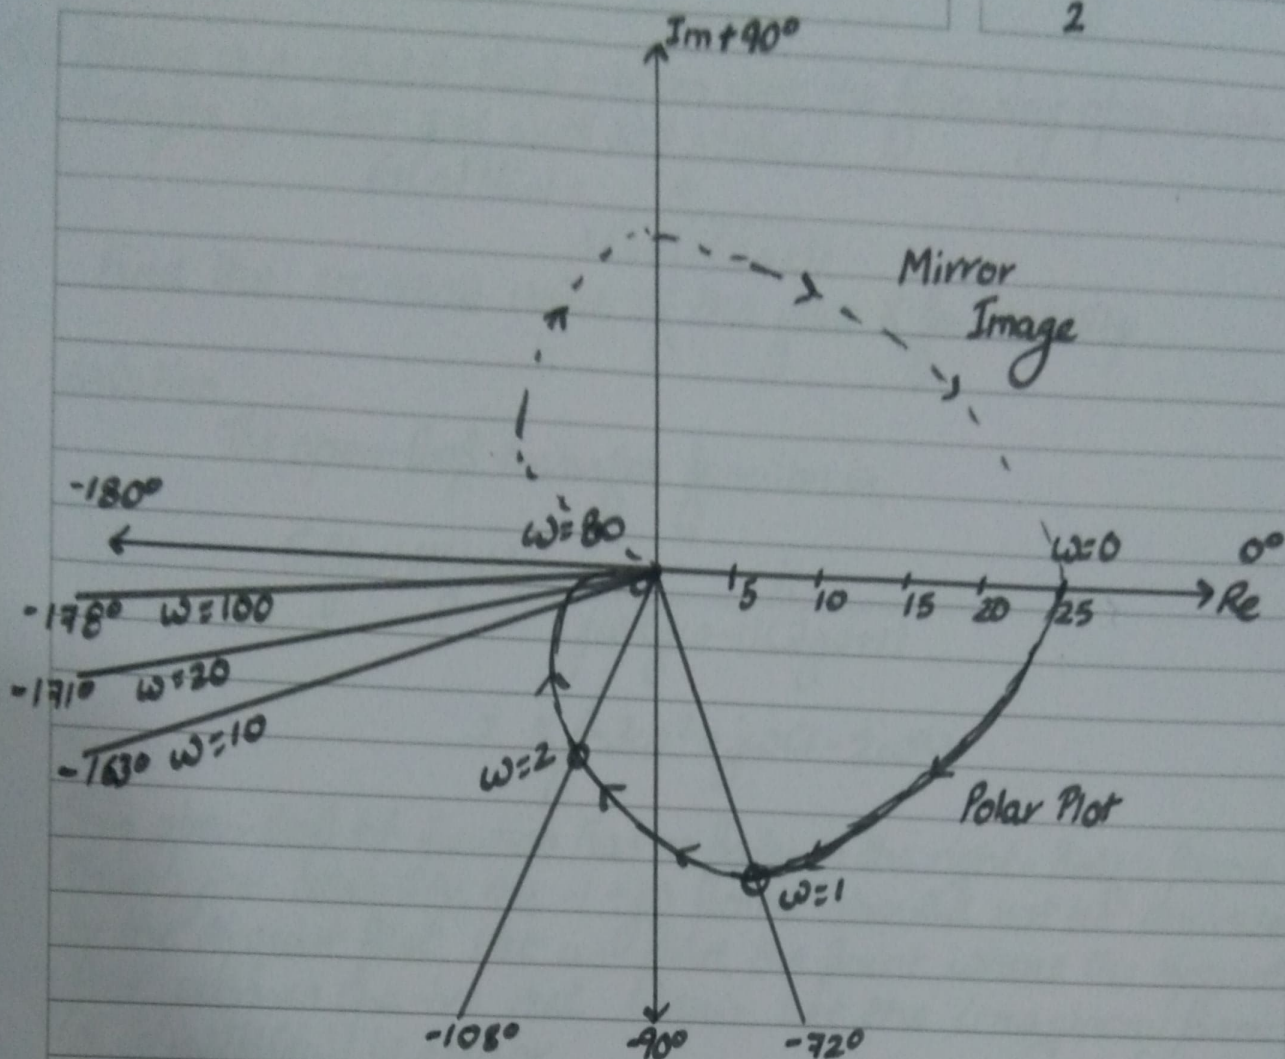 2
Im+90°
Mirror
Image
-180°
ω=∞
ω=0
0°
5
10
15
20
25
Re
-178° ω=100
-171° ω=20
-163° ω=10
ω=2
Polar Plot
ω=1
-108°
-90°
-72°